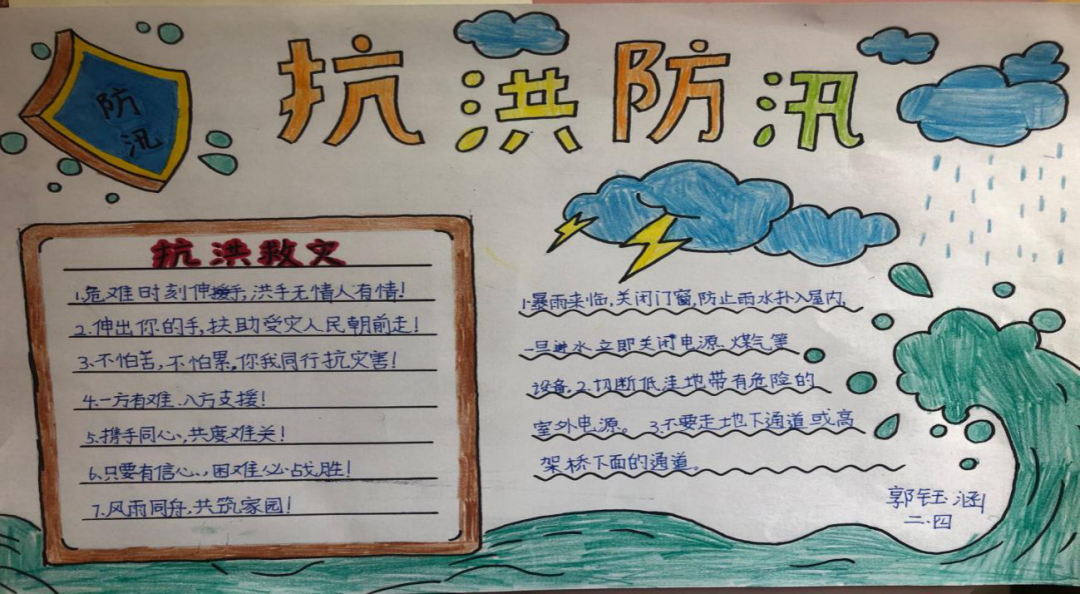 防
汛
抗洪防汛
抗洪救灾
1.危难时刻伸援手,洪手无情人有情!
2.伸出你的手,扶助受灾人民朝前走!
3.不怕苦,不怕累,你我同行抗灾害!
4.一方有难、八方支援!
5.携手同心、共度难关!
6.只要有信心、困难必战胜!
7.风雨同舟,共筑家园!
1.暴雨来临,关闭门窗,防止雨水扑入屋内,
一旦进水立即关闭电源、煤气等
设备。2.切断低洼地带有危险的
室外电源。3.不要走地下通道或高
架桥下面的通道。
郭钰涵
二·四